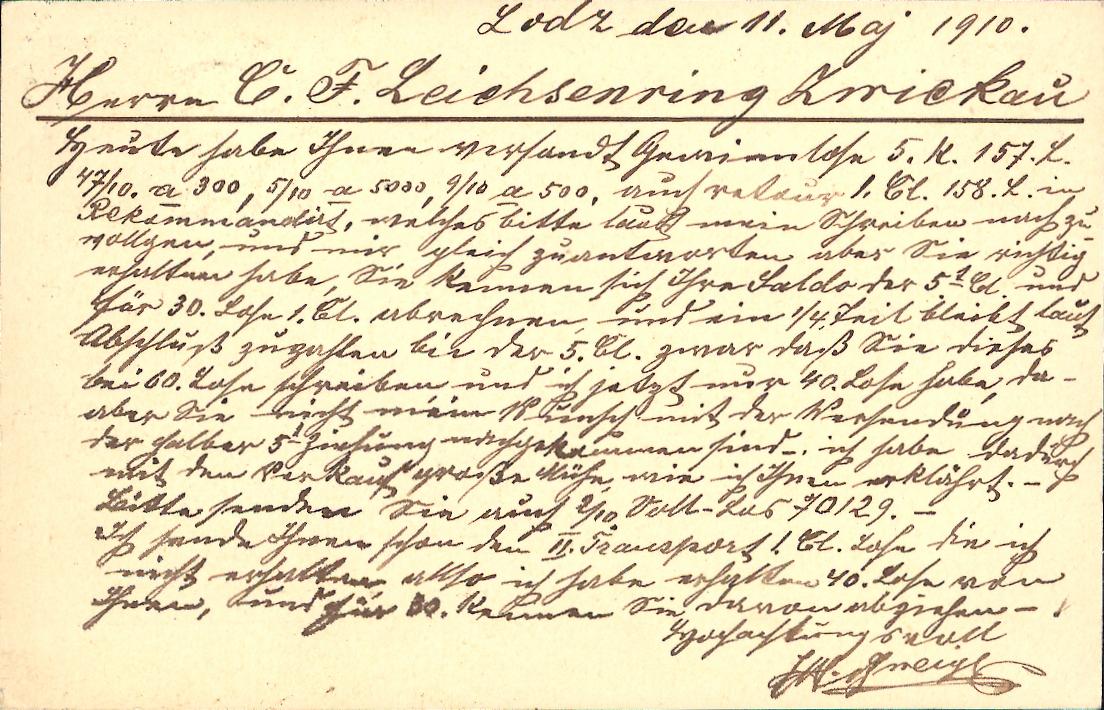 Lodz den 11. Maj 1910.
Herrn C. F. Leichsenring Zwickau
Heute habe Ihnen versandt Gewinnlose 5. K. 157. L.
47/10. a 300, 5/10 a 5000, 9/10 a 500, auch retour 1. Cl. 158. L. in
Rekommandirt, welches bitte laut mein Schreiben nach zu
vollgen, und mir gleich zuantworten aber Sie richtig
erhalten habe, Sie kennen sich Ihre Saldo der 5t Cl und
für 30. Lose 1. Cl. abrechnen, und ein 1/4 Teil bleibt laut
Abschluß zuzahlen bis der 5. Cl. zwar daß Sie dieses
bei 60. Lose schreiben und ich jetzt nur 40. Lose habe, da-
aber Sie nicht mein Wunsch mit der Versendung nach
der halber 5t Ziehung nachgekommen sind -. ich habe dadurch
mit den Verkauf große Mühe wie ich Ihnen erklährt. -
Bitte senden Sie auch 2/10 Voll-Los 70129. -
Ich sende Ihnen schon den II. Transport 1. Cl. Lose die ich
nicht erhalten also ich habe erhalten 40. Lose von
Ihnen, und für 30. kennen Sie davon abziehen -
Hochachtungsvoll